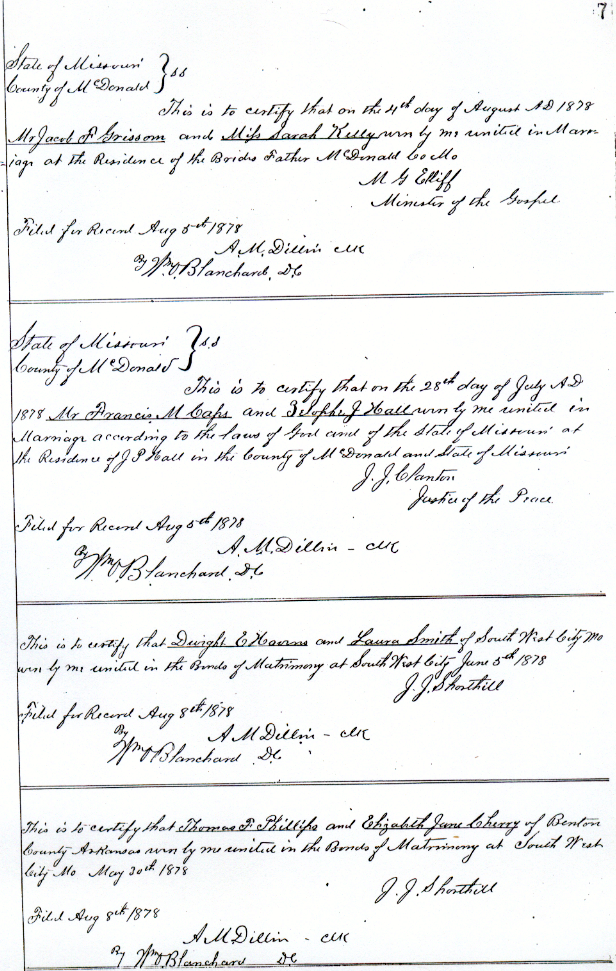 7
State of Missouri
County of McDonald } ss
This is to certify that on the 4th day of August AD 1878
Mr Jacob F Grissom and Miss Sarah Kelly wern by me united in Marr-
iage at the Residence of the Brides Father McDonald Co Mo
M G Elliff
Minister of the Gospel
Filed for Record Aug 5th 1878
A. M. Dillin clk
By Wm O. Blanchard, D.C
State of Missouri
County of McDonald } s.s
This is to certify that on the 28th day of July A D
1878 Mr Francis M Caps and J Hall wern by me united in
Marriage according to the laws of God and of the State of Missouri at
the Residence of J P Hall in the County of McDonald and State of Missouri
J. J. Clanton
Justice of the Peace
Filed for Record Aug 5th 1878
A. M. Dillin - clk
By Wm O Blanchard. D.C
This is to certify that Dwight E Havens and Laura Smith of South West City Mo
wern by me united in the Bonds of Matrimony at South West City June 5th 1878
J. J. Shorthill
Filed for Record Aug 8th 1878
A M Dillin - clk
By Wm O Blanchard D.C
This is to certify that Thomas F Phillips and Elizabeth Jane Cherry of Benton
County Arkansas wern by me united in the Bonds of Matrimony at South West
City Mo May 30th 1878
J. J. Shorthill
Filed Aug 8th 1878
A M Dillin - clk
By Wm O. Blanchard D.C